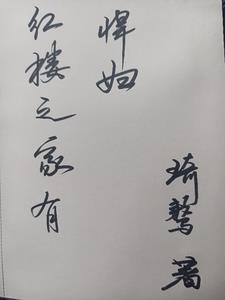 红楼之家有
悍妇
琦 著